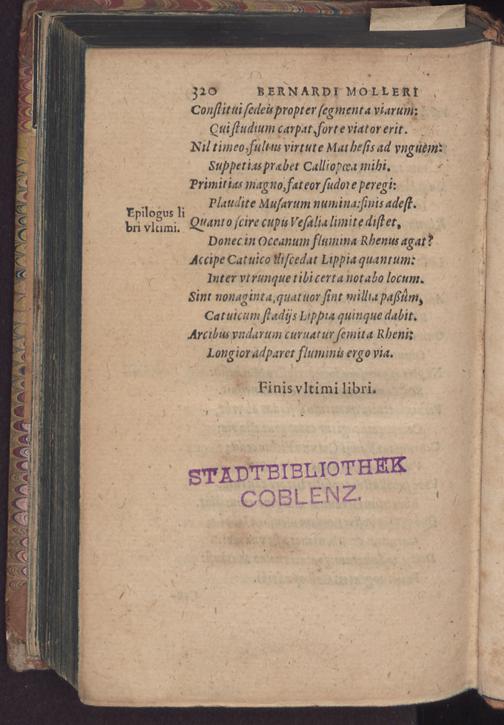 320 BERNARDI MOLLERI
Conſtitui ſedeis propter ſegmenta viarum:
Qui ſtudium carpat, forte viator erit.
Nil timeo, fultus virtute Matheſis ad vnguẽ:
Suppetias præbet Calliopœa mihi.
Primitias magno, fateor ſudore peregi:
Plaudite Muſarum numina: finis adeſt.
Epilogus li
bri vltimi.
Quanto ſcire cupis Veſalia limite diſtet,
Donec in Oceanum flumina Rhenus agat?
Accipe Catuico diſcedat Lippia quantum:
Inter vtrunque tibi certa notabo locum.
Sint nonaginta, quatuor ſint millia paßûm,
Catuicum ſtadijs Lippia quinque dabit.
Arcibus vndarum curuatur ſemita Rheni:
Longior adparet fluminis ergo via.
Finis vltimi libri.
STADTBIBLIOTHEK
COBLENZ.